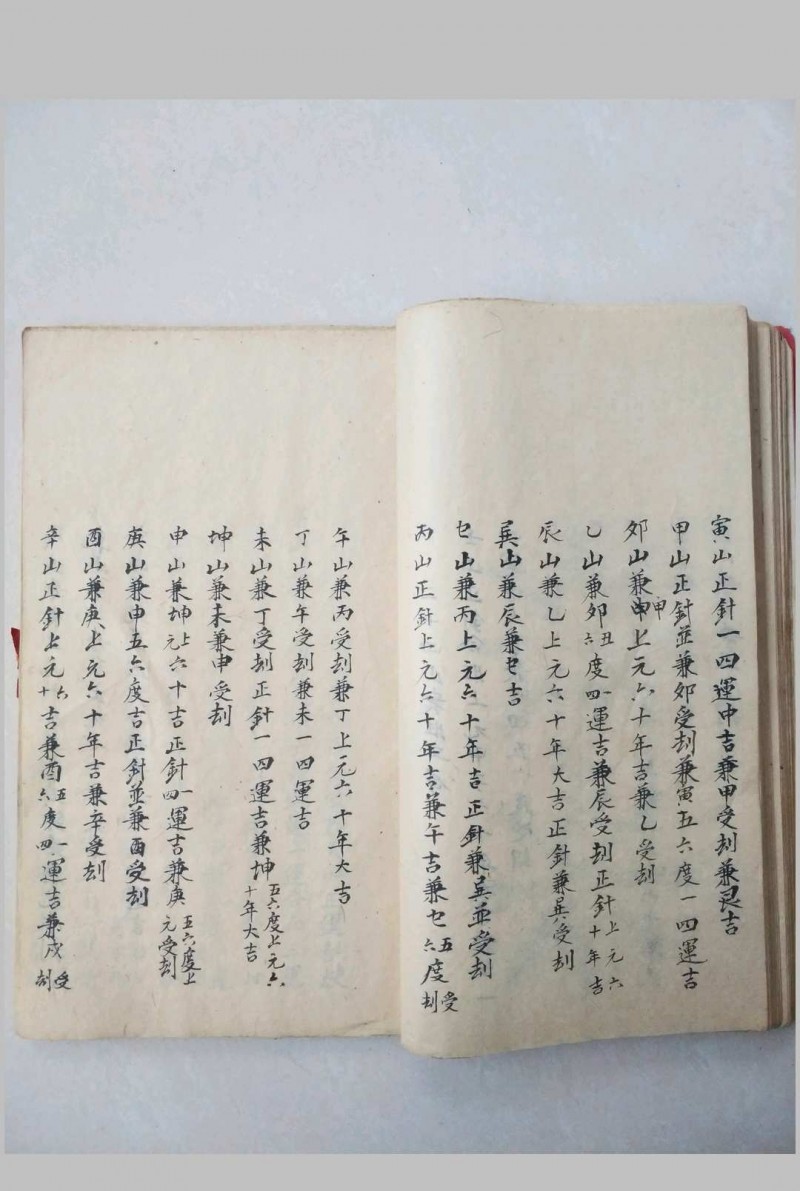 寅山正針一四運中吉兼甲受刦兼艮吉
甲山正針並兼夘受刦兼寅五六度一四運吉
夘山兼申上元六十年吉兼乙受刦
乙山兼夘五六度一四運吉兼辰受刦正針上元六十年吉
辰山兼乙上元六十年大吉正針兼巽受刦
巽山兼辰兼巳吉
巳山兼丙上元六十年吉正針兼巽並受刦
丙山正針上元六十年吉兼午吉兼巳五六度受刦
午山兼丙受刦兼丁上元六十年大吉
丁山兼午受刦兼未一四運吉
未山兼丁受刦正針一四運吉兼坤五六度上元六十年大吉
坤山兼未兼申受刦
申山兼坤上元六十吉正針一四運吉兼庚五六度上元受刦
庚山兼申五六度吉正針並兼酉受刦
酉山兼庚上元六十年吉兼辛受刦
辛山正針上元六十吉兼酉五六度一四運吉兼戌受刦